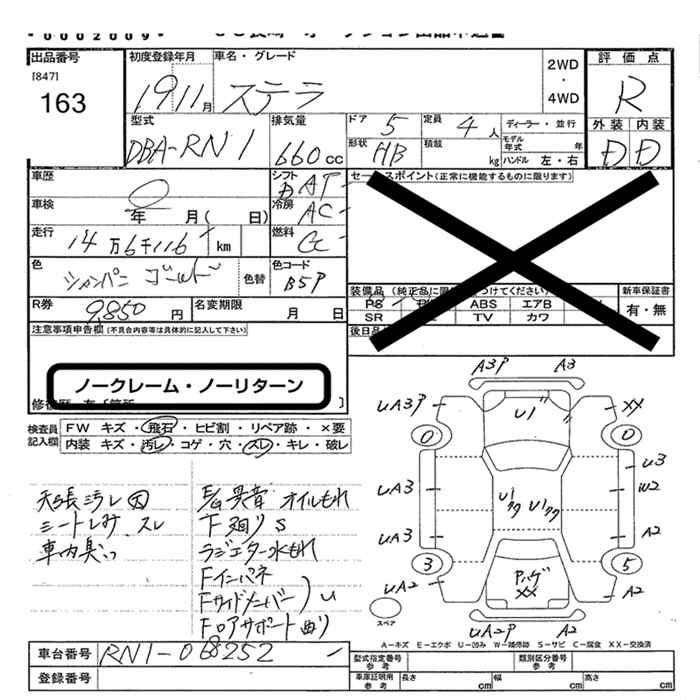 *0002009*
出品番号
[847]
163
初度登録年月
19 11 月
車名・グレード
ステラ
2WD
・
4WD
評価点
R
外装 内装
D D
型式
DBA-RN1
排気量
660 cc
ドア 5
定員 4 人
形状 HB
積載 kg
ディーラー・並行
モデル年式 年
ハンドル 左・右
車歴
車検
0
年 月( 日)
走行
14万6千116 km
シフト DAT
冷房 AC
燃料 G
色
シャンパンゴールド
色替
色コード
B5P
R券
9,850 円
名変期限
月 日
セールスポイント(正常に機能するものに限ります)
装備品
ABS エアB
SR TV カワ
新車保証書
有・無
後日品
注意事項申告欄(不具合内容等は具体的に記入して下さい)
ノークレーム・ノーリターン
検査員記入欄
FW キズ・飛石・ヒビ割・リペア跡・×要
内装 キズ・汚レ・コゲ・穴・スレ・キレ・破レ
天張汚レ 凹
シートしみ、スレ
車内臭い
E/G異音 オイルもれ
下廻りS
ラジエター水もれ
Fインパネ
Fサイドメンバー
Fロアサポート 曲り
U
A3P A3
UA3P U1 XX
0 0
UA3 U3
W2
U1 U1
UA3 A2
3 5
UA2 Pハゲ A2
XX
UA2P A2
スペア
A-キズ E-エクボ U-凹み W-補修跡 S-サビ C-腐食 XX-交換済
車台番号 RN1-068252
登録番号
型式指定番号 参考
類別区分番号 参考
車庫証明用 参考
長さ cm
幅 cm
高さ cm